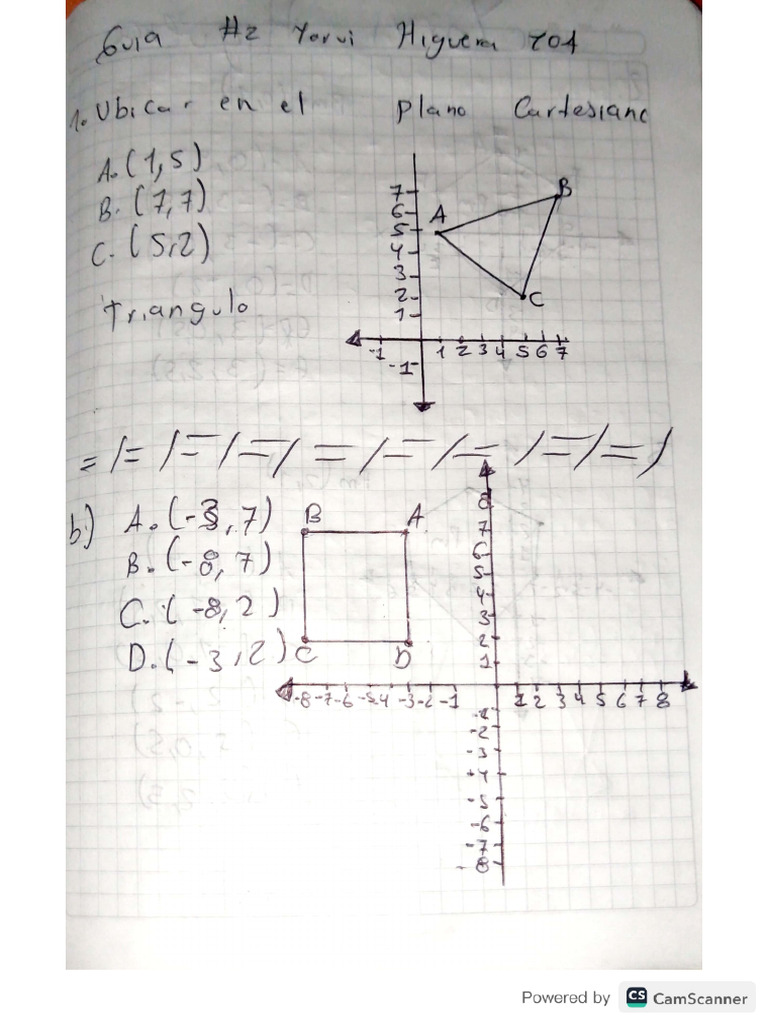 Guia #2 Yorvi Higuera 704
1. Ubicar en el plano Cartesiano
A. (1,5)
B. (7,7)
C. (5,2)
Triangulo
7
6
5
4
3
2
1
A
B
C
-1 1 2 3 4 5 6 7
-1
b.) A. (-3,7)
B. (-8,7)
C. (-8,2)
D. (-3,2)
B A
C D
8
7
6
5
4
3
2
1
-8 -7 -6 -5 -4 -3 -2 -1 1 2 3 4 5 6 7 8
-1
-2
-3
-4
-5
-6
-7
-8
Powered by CS CamScanner